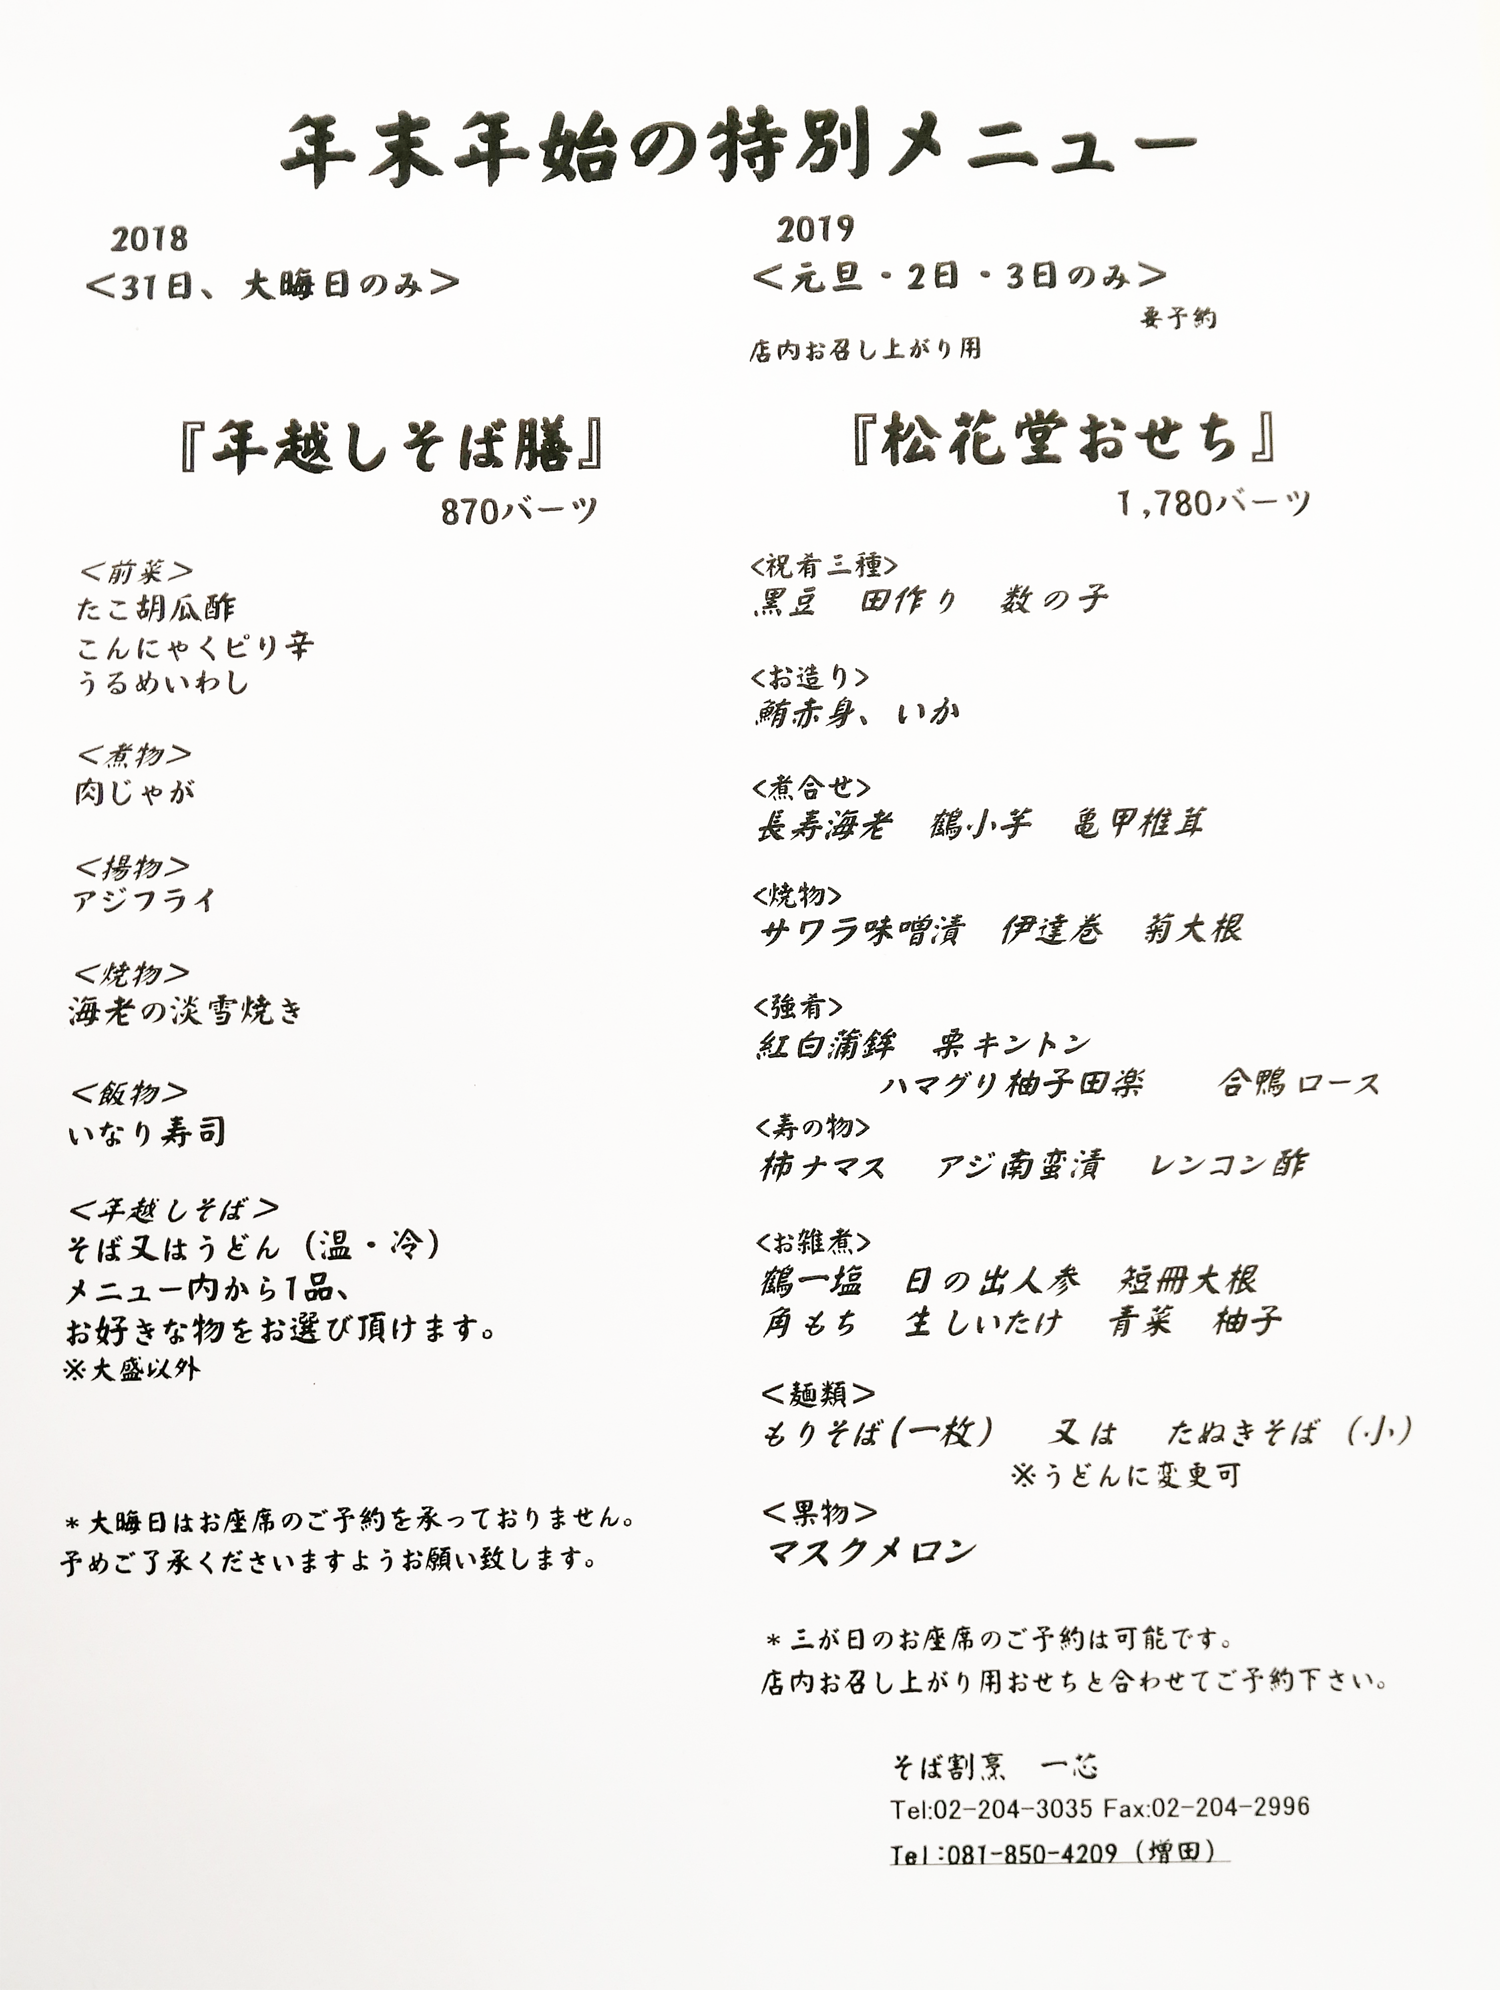 年末年始の特別メニュー
2018
＜31日、大晦日のみ＞
『年越しそば膳』
870バーツ
＜前菜＞
たこ胡瓜酢
こんにゃくピリ辛
うるめいわし
＜煮物＞
肉じゃが
＜揚物＞
アジフライ
＜焼物＞
海老の淡雪焼き
＜飯物＞
いなり寿司
＜年越しそば＞
そば又はうどん（温・冷）
メニュー内から1品、
お好きな物をお選び頂けます。
※大盛以外
＊大晦日はお座席のご予約を承っておりません。
予めご了承くださいますようお願い致します。
2019
＜元旦・2日・3日のみ＞
要予約
店内お召し上がり用
『松花堂おせち』
1,780バーツ
<祝肴三種>
黒豆　田作り　数の子
<お造り>
鮪赤身、いか
<煮合せ>
長寿海老　鶴小芋　亀甲椎茸
<焼物>
サワラ味噌漬　伊達巻　菊大根
<強肴>
紅白蒲鉾　栗キントン
ハマグリ柚子田楽　　合鴨ロース
<寿の物>
柿ナマス　アジ南蛮漬　レンコン酢
<お雑煮>
鶴一塩　日の出人参　短冊大根
角もち　生しいたけ　青菜　柚子
＜麺類＞
もりそば(一枚)　又は　たぬきそば（小）
※うどんに変更可
＜果物＞
マスクメロン
＊三が日のお座席のご予約は可能です。
店内お召し上がり用おせちと合わせてご予約下さい。
そば割烹　一芯
Tel:02-204-3035 Fax:02-204-2996
Tel:081-850-4209（増田）